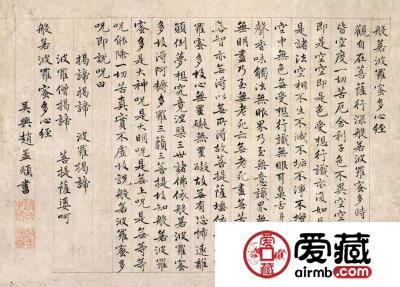 般若波羅蜜多心經
觀自在菩薩行深般若波羅蜜多時
皆空度一切苦厄舍利子色不異空空
即是空空即是色受想行識亦復如
是諸法空相不生不滅不垢不淨不增
空中無色無受想行識無眼耳鼻舌
聲香味觸法無眼界乃至無意識
無明盡乃至無老死亦無老死盡
亦無得以無所得故菩提薩埵依
羅蜜多故心無罣礙無罣礙故無有恐怖遠離
顛倒夢想究竟涅槃三世諸佛依般若波羅蜜
多故得阿耨多羅三藐三菩提故知般若波羅
蜜多是大神呪是大明呪是無上呪是無等等
呪能除一切苦真實不虛故說般若波羅蜜多
呪即說呪曰
揭諦揭諦 波羅揭諦
波羅僧揭諦 菩提薩婆訶
吳興趙孟頫書
爱藏
airmb.com